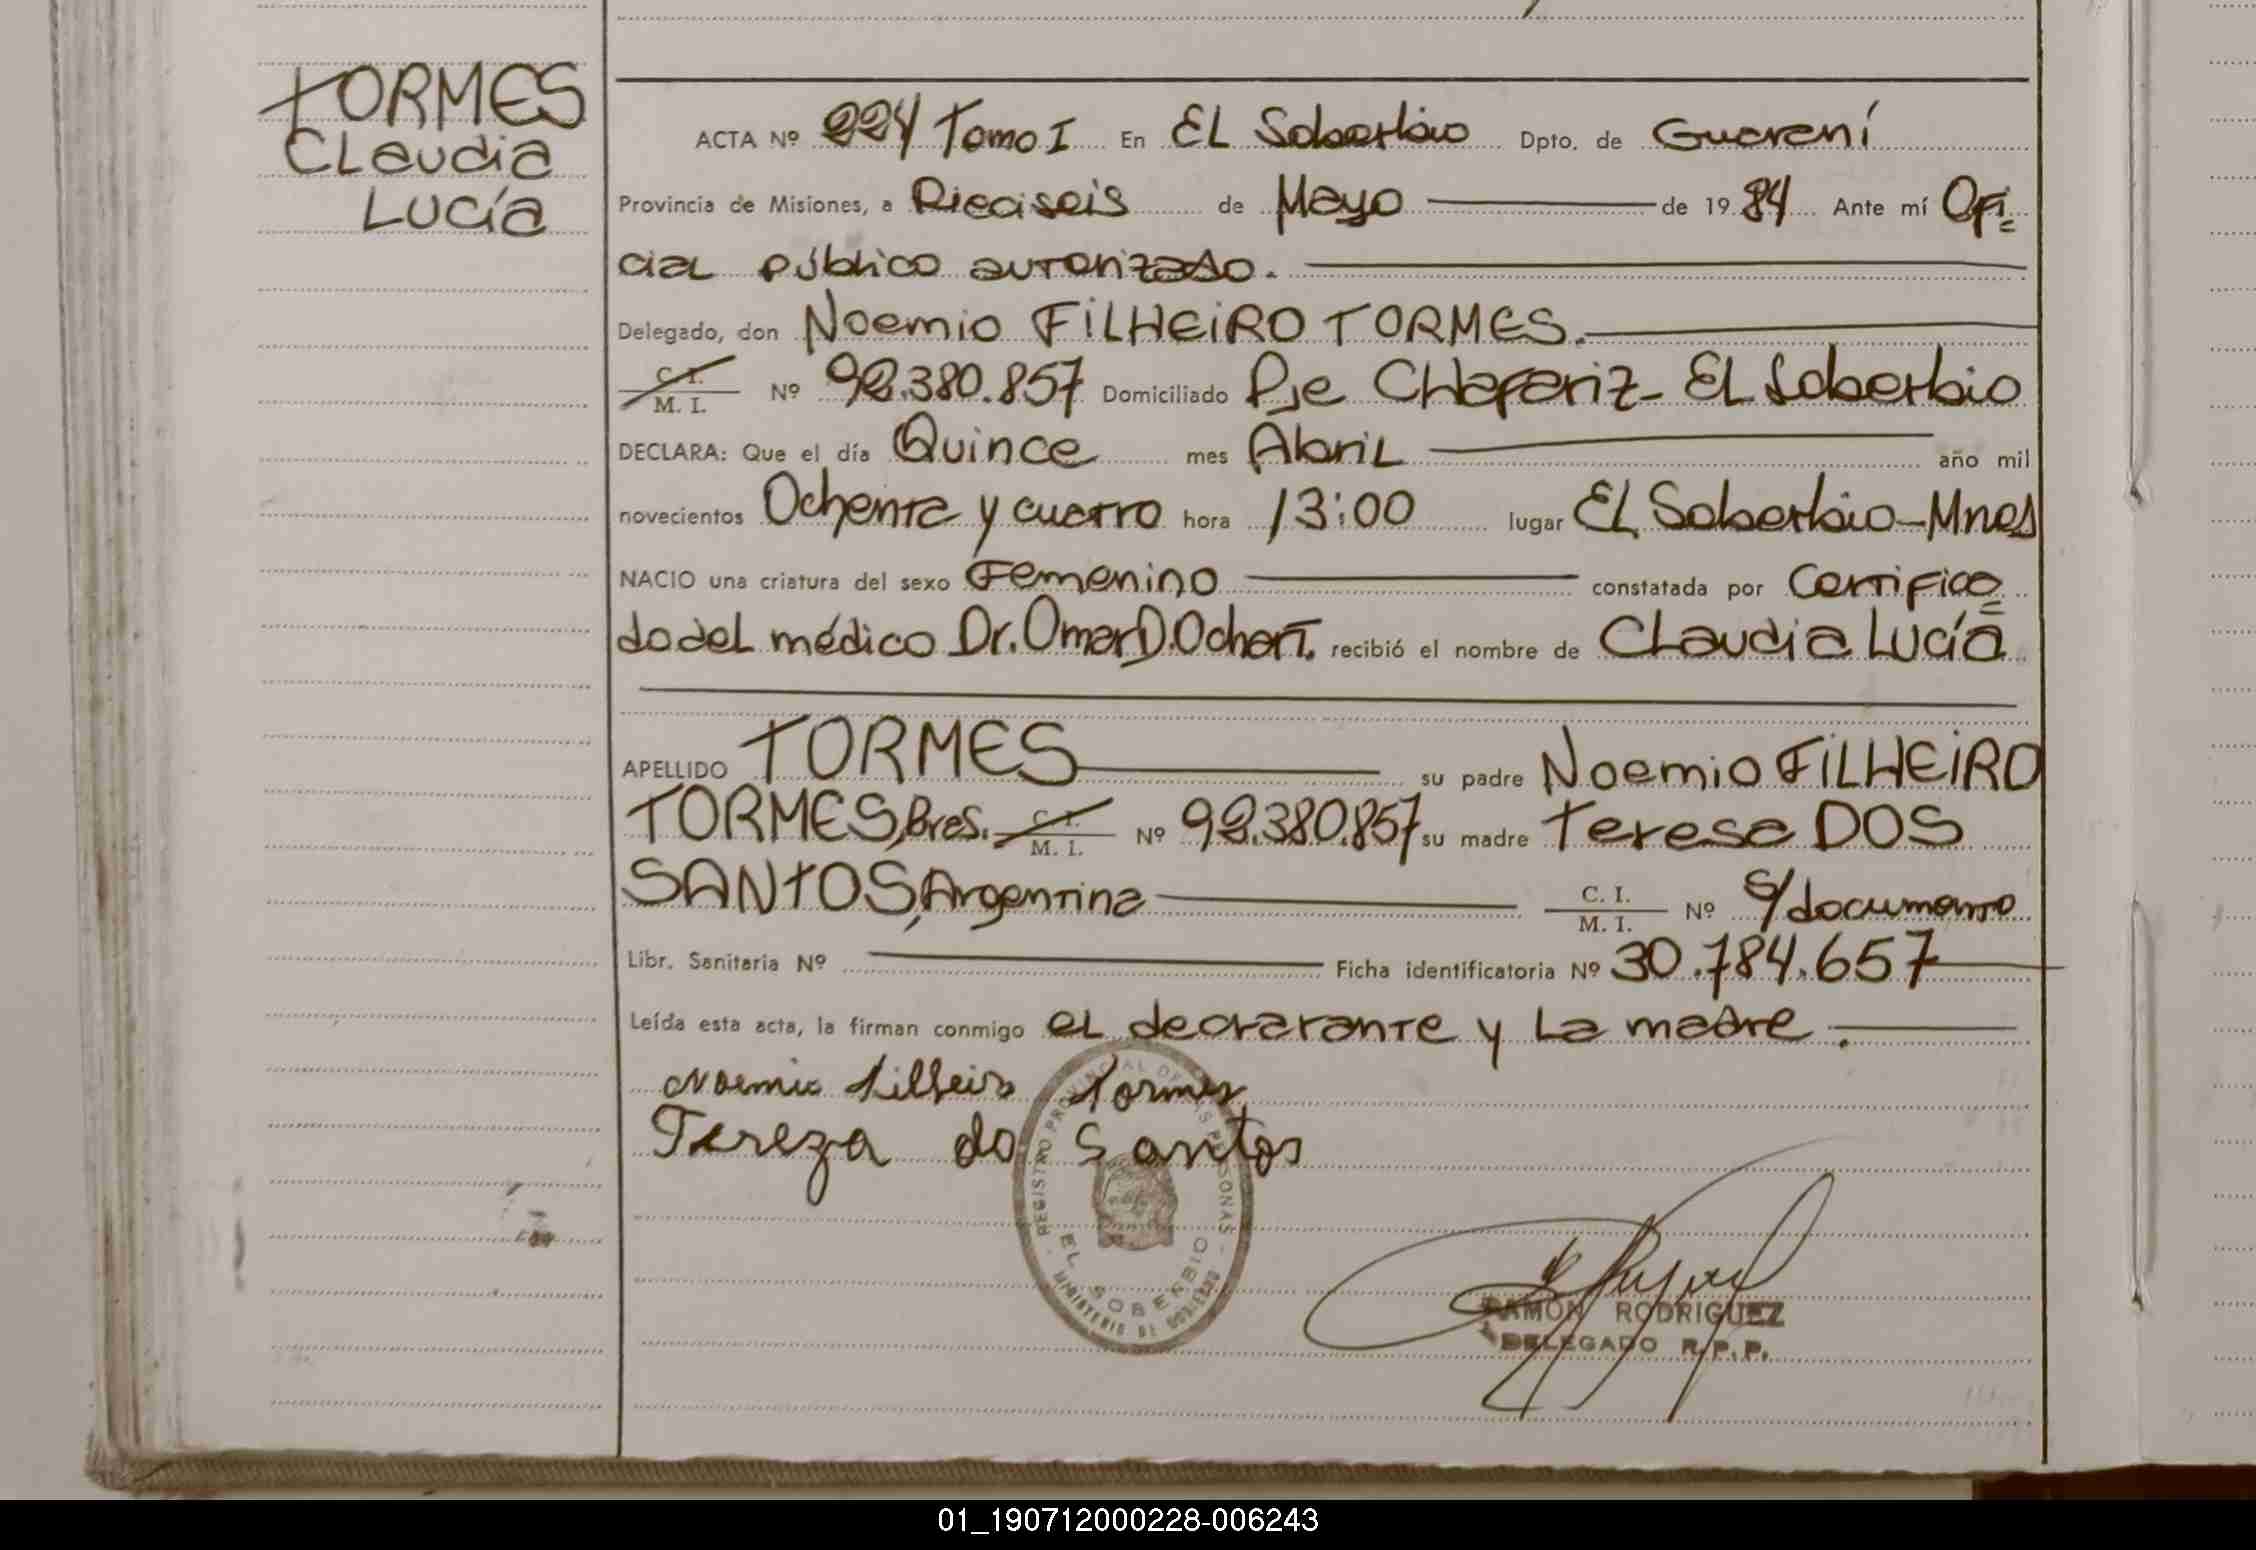 TORMES
Claudia
Lucía
ACTA Nº 224 Tomo I En EL Soberbio Dpto. de Guaraní
Provincia de Misiones, a Dieciseis de Mayo de 1984 Ante mí Ofi=
cial público autorizado.
Delegado, don Noemio FILHEIRO TORMES.
C. I.
M. I. Nº 92.380.857 Domiciliado Pje Chafariz - EL Soberbio
DECLARA: Que el día Quince mes Abril año mil
novecientos Ochenta y cuatro hora 13:00 lugar EL Soberbio - Mnes
NACIO una criatura del sexo Femenino constatada por Certifica=
do del médico Dr. Omar D. recibió el nombre de Claudia Lucía
APELLIDO TORMES su padre Noemio FILHEIRO
TORMES, Bras. C. I. M. I. Nº 92.380.857 su madre Teresa DOS
SANTOS, Argentina C. I. M. I. Nº S/documento
Libr. Sanitaria Nº Ficha identificatoria Nº 30.784.657
Leída esta acta, la firman conmigo el declarante y la madre.
Noemio Filheiro Tormes
Tereza do Santos
REGISTRO PROVINCIAL DE LAS PERSONAS
EL SOBERBIO
MINISTERIO DE GOBIERNO
RAMON RODRIGUEZ
DELEGADO R.P.P.
01_190712000228-006243